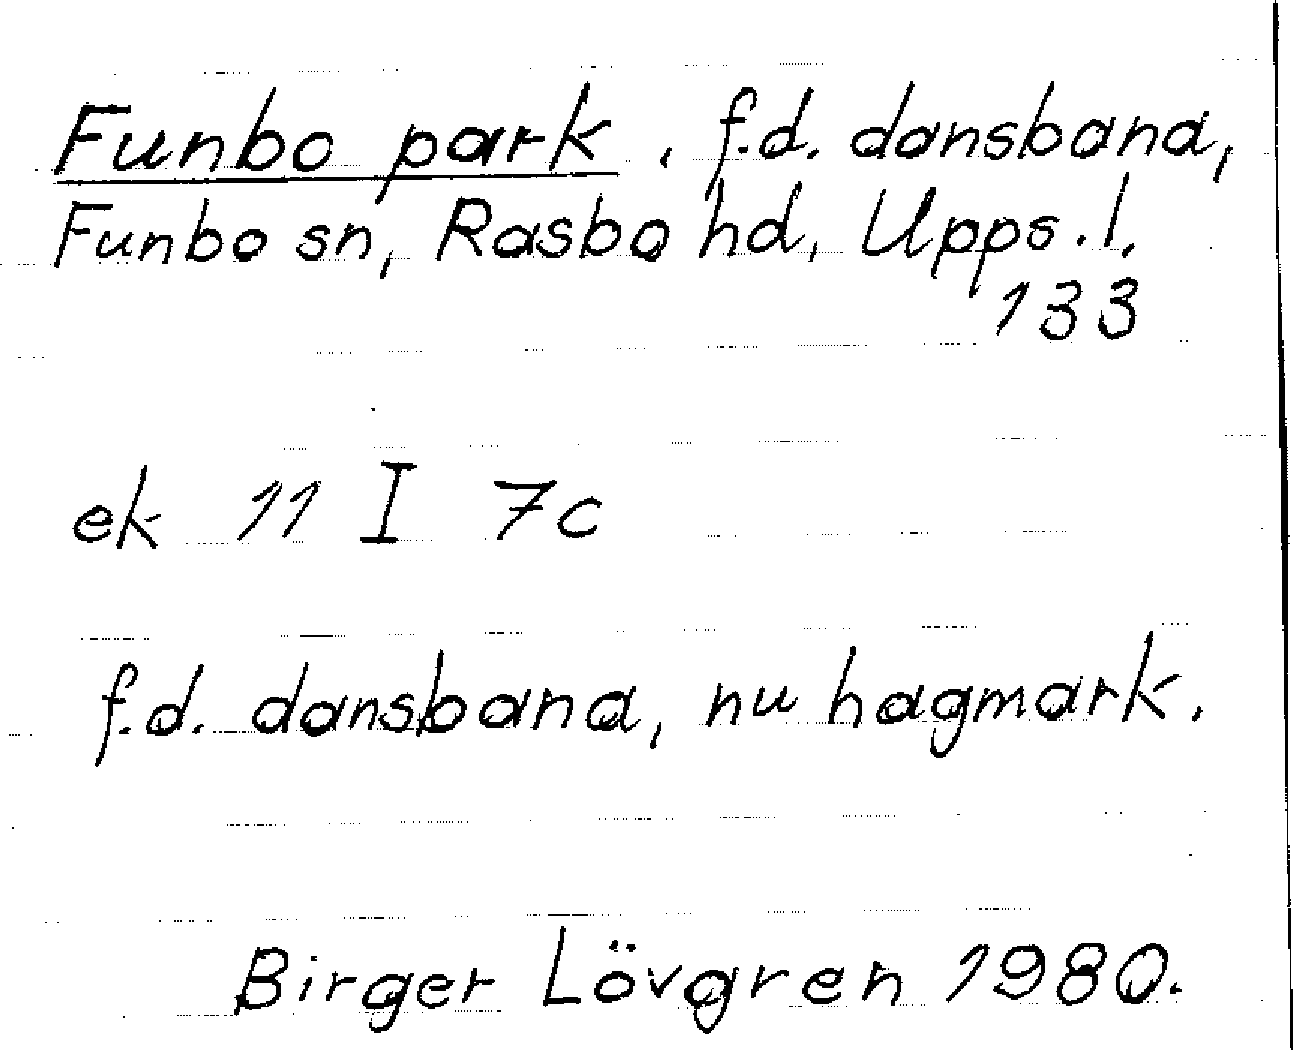 Funbo park, f.d. dansbana,
Funbo sn, Rasbo hd, Upps. l.
133
ek 11 I 7c
f.d. dansbana, nu hagmark.
Birger Lövgren 1980.